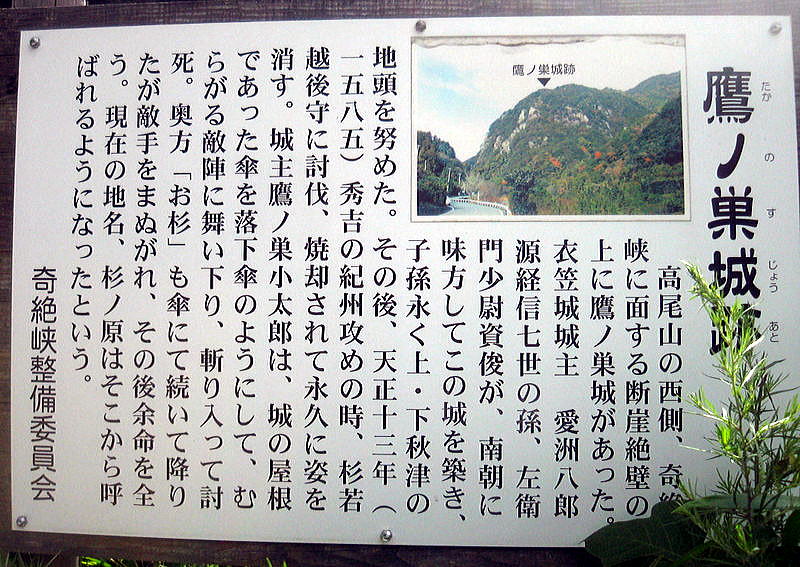 鷹ノ巣城跡
たか の す じょう あと
鷹ノ巣城跡
高尾山の西側、奇絶
峡に面する断崖絶壁の
上に鷹ノ巣城があった。
衣笠城城主 愛洲八郎
源経信七世の孫、左衛
門少尉資俊が、南朝に
味方してこの城を築き、
子孫永く上・下秋津の
地頭を努めた。その後、天正十三年(
一五八五)秀吉の紀州攻めの時、杉若
越後守に討伐、焼却されて永久に姿を
消す。城主鷹ノ巣小太郎は、城の屋根
であった傘を落下傘のようにして、む
らがる敵陣に舞い下り、斬り入って討
死。奥方「お杉」も傘にて続いて降り
たが敵手をまぬがれ、その後余命を全
う。現在の地名、杉ノ原はそこから呼
ばれるようになったという。
奇絶峡整備委員会